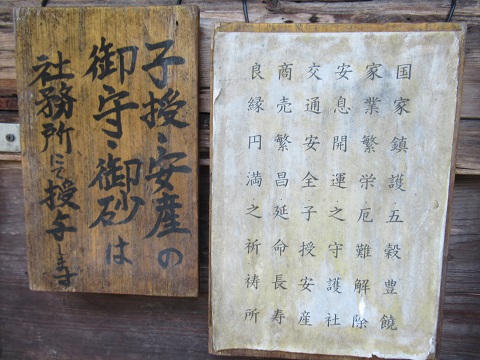 子授・安産の
御守・御砂は
社務所にて授与します
国家鎮護五穀豊饒
家業繁栄厄難解除
安息開運之守護社
交通安全子授安産
商売繁昌延命長寿
良縁円満之祈祷所